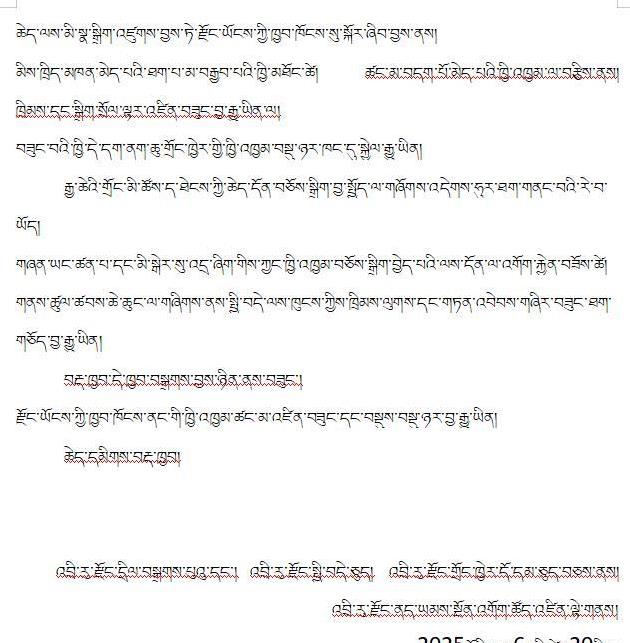 ཆེད་ལས་མི་སྣ་སྒྲིག་འཛུགས་བྱས་ཏེ་རྫོང་ཡོངས་ཀྱི་ཁྱབ་ཁོངས་སུ་སྐོར་ཞིབ་བྱས་ནས།
མིས་ཁྲིད་མཁན་མེད་པའི་ཐག་པ་མ་བརྒྱབ་པའི་ཁྱི་མཐོང་ཚེ། ཚང་མ་བདག་པོ་མེད་པའི་ཁྱི་འཁྱམ་ལ་བརྩིས་ནས།
ཁྲིམས་དང་སྒྲིག་སྲོལ་ལྟར་འཛིན་བཟུང་བྱ་རྒྱུ་ཡིན་ལ།
བཟུང་བའི་ཁྱི་དེ་དག་ནག་ཆུ་གྲོང་ཁྱེར་གྱི་ཁྱི་འཁྱམ་བསྡུ་ཉར་ཁང་དུ་སྐྱེལ་རྒྱུ་ཡིན།
རྒྱ་ཆེའི་གྲོང་མི་ཚོས་ད་ཐེངས་ཀྱི་ཆེད་དོན་བཅོས་སྒྲིག་བྱ་སྤྱོད་ལ་གཞོགས་འདེགས་ཧུར་ཐག་གནང་བའི་རེ་བ་
ཡོད།
གཞན་ཡང་ཚན་པ་དང་མི་སྒེར་སུ་འདྲ་ཞིག་གིས་ཀྱང་ཁྱི་འཁྱམ་བཅོས་སྒྲིག་བྱེད་པའི་ལས་དོན་ལ་འགོག་རྐྱེན་བཟོས་ཚེ།
གནས་ཚུལ་ཚབས་ཆེ་ཆུང་ལ་གཞིགས་ནས་སྤྱི་བདེ་ལས་ཁུངས་ཀྱིས་ཁྲིམས་ལུགས་དང་གཏན་འབེབས་གཞིར་བཟུང་ཐག་
གཅོད་བྱ་རྒྱུ་ཡིན།
བརྡ་ཁྱབ་དེ་ཁྱབ་བསྒྲགས་བྱས་ཉིན་ནས་བཟུང་།
རྫོང་ཡོངས་ཀྱི་ཁྱབ་ཁོངས་ནང་གི་ཁྱི་འཁྱམ་ཚང་མ་འཛིན་བཟུང་དང་བསྡུས་བསྡུ་ཉར་བྱ་རྒྱུ་ཡིན།
ཆེད་དམིགས་བརྡ་ཁྱབ།
འབྲི་རུ་རྫོང་དྲིལ་བསྒྲགས་པུའུ་དང་། འབྲི་རུ་རྫོང་སྤྱི་བདེ་ཅུད། འབྲི་རུ་རྫོང་གྲོང་ཁྱེར་དོ་དམ་ཅུད་བཅས་ནས།
འབྲི་རུ་རྫོང་ནད་ཡམས་སྔོན་འགོག་ཚོད་འཛིན་ལྟེ་གནས།